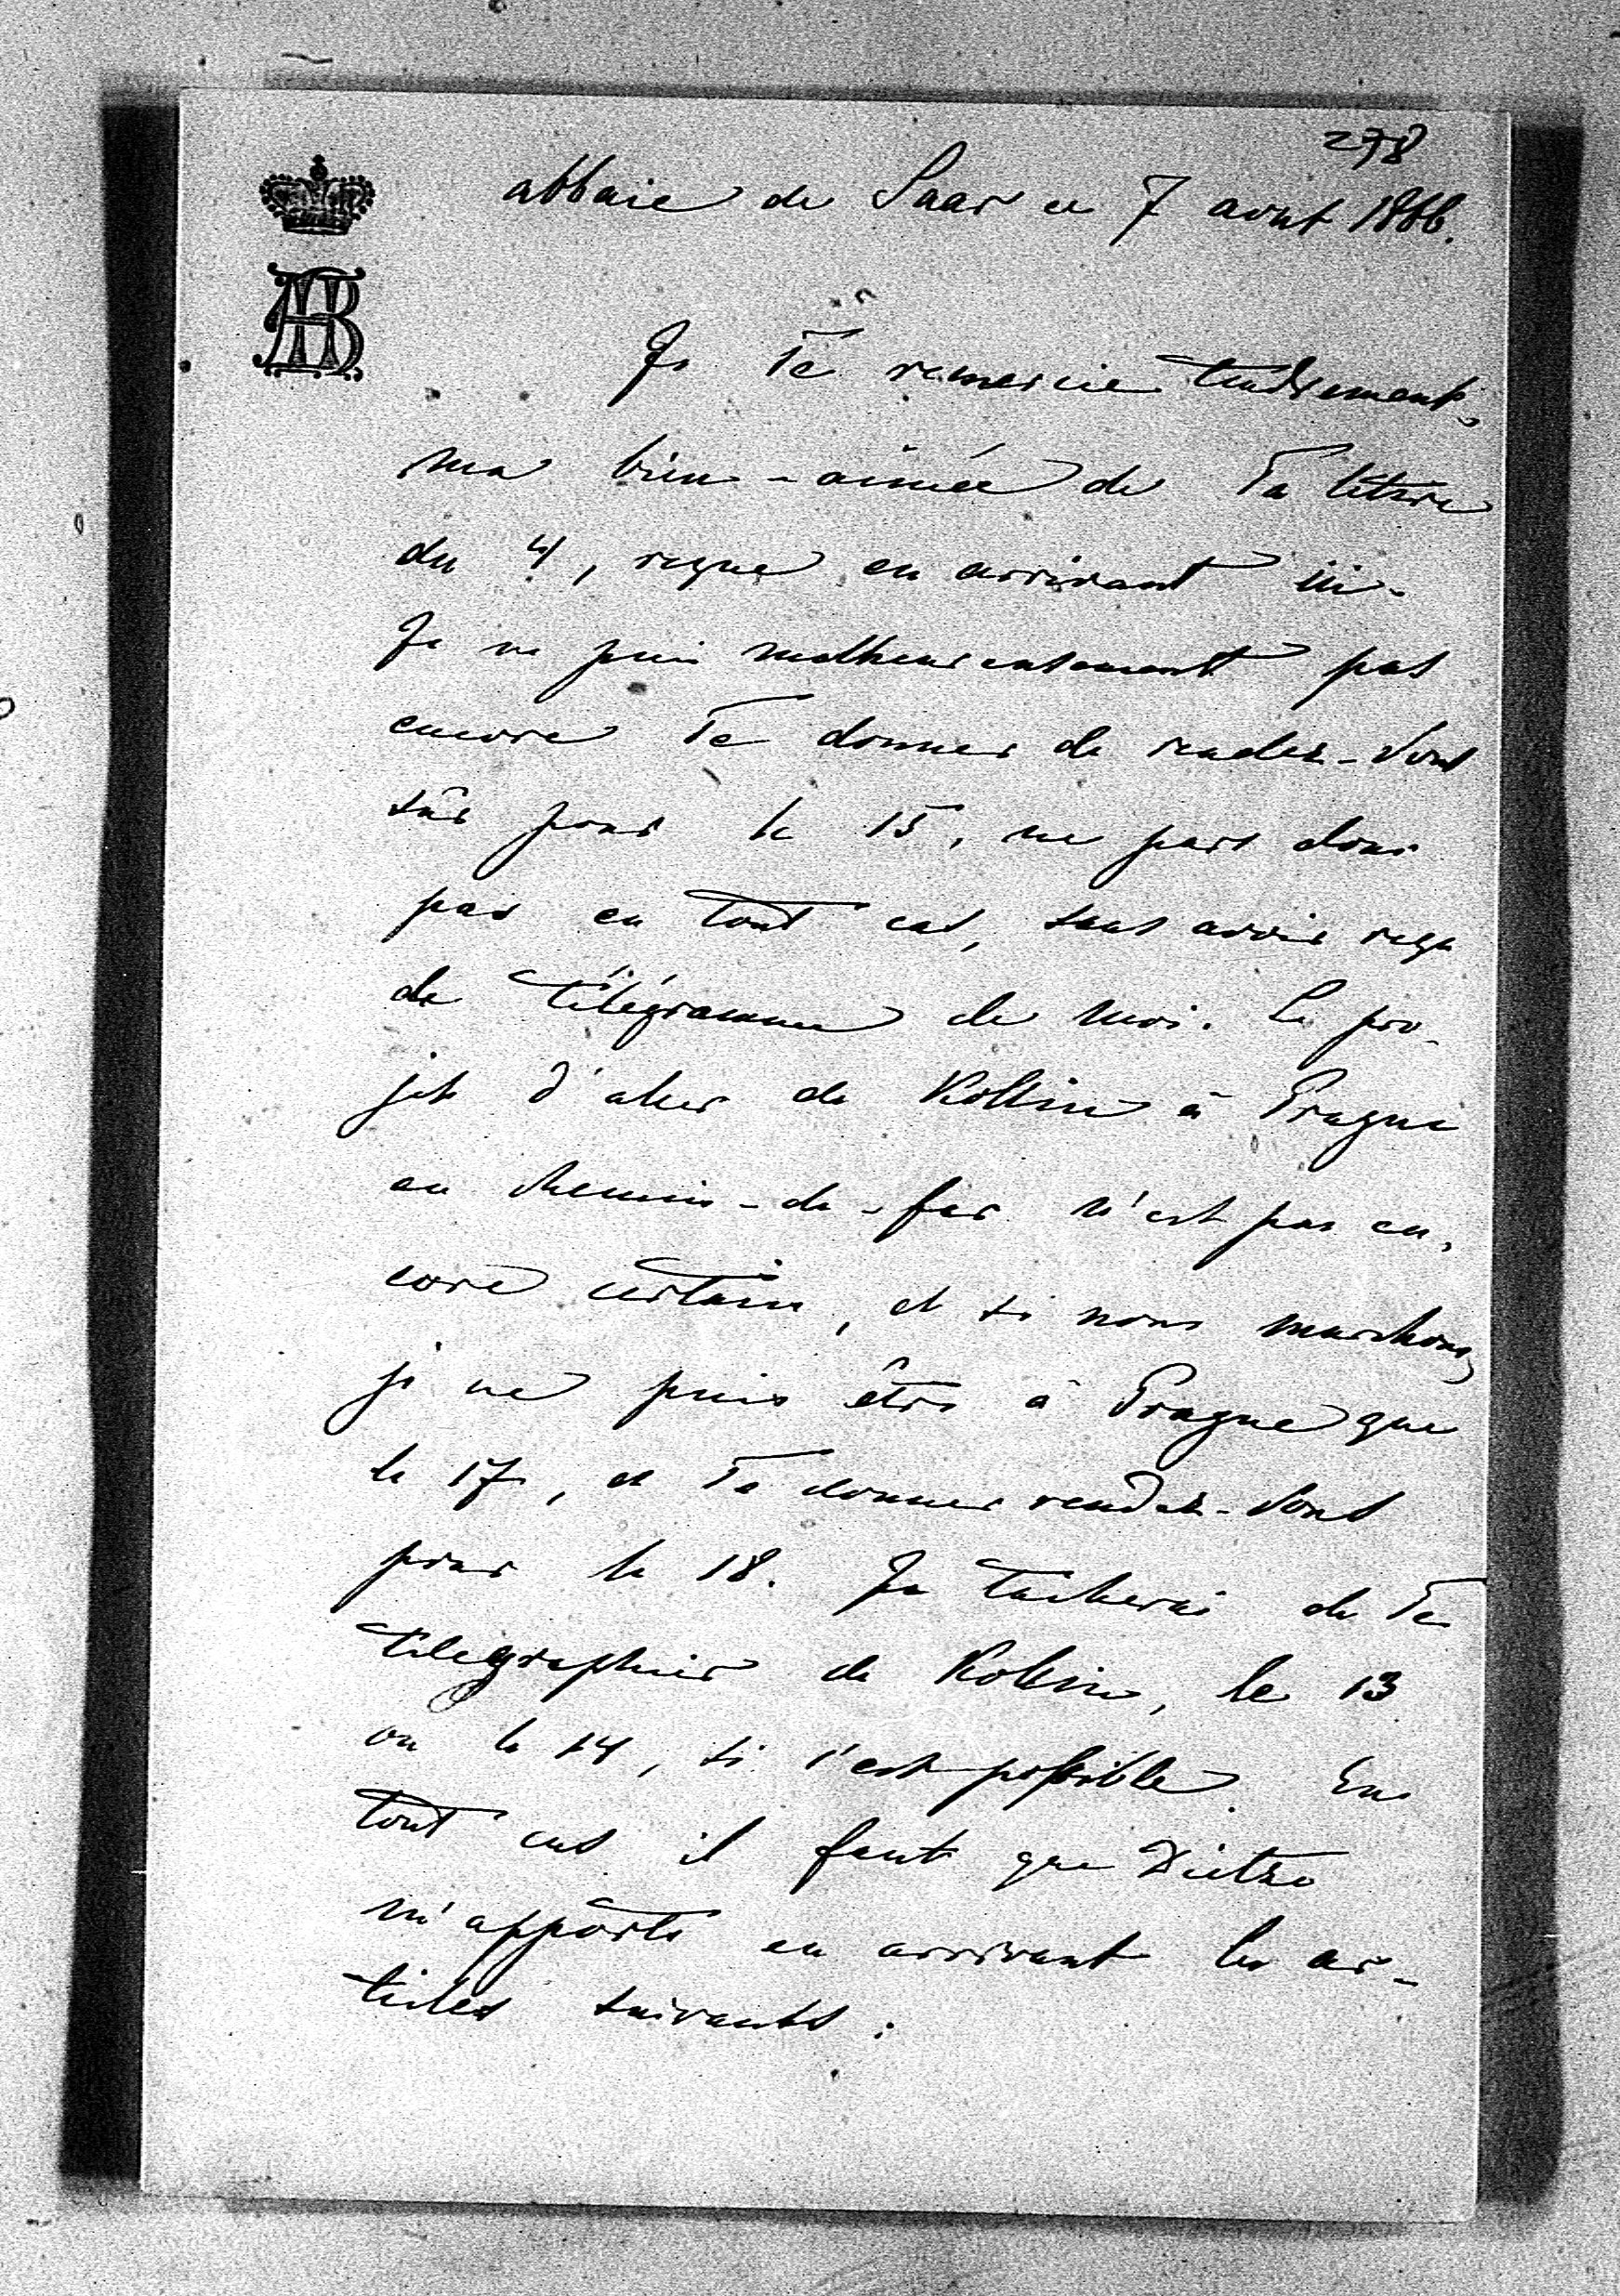 278
abbaie de Saar ce 7 avut 1866.
AB
Je Te remercie tendrement,
ma bien-aimée de Ta lettre
du 4, reçue en arrivant ici.
Je ne puis malheureusement pas
encore Te donner de rendez-vous
sûr pour le 15, ne pars donc
pas en tout cas, sans avoir reçu
de télégramme de moi. Le pro-
jet d'aller de Kollin à Prague
en chemin-de-fer n'est pas en-
core certain, et si nous marchons,
je ne puis être à Prague que
le 17, et Te donner rendez-vous
pour le 18. Je tacherai de Te
télegraphier de Kollin, le 13
ou le 14, si c'est possible. En
tout cas il faut que
m'apporte en arrivant les ar-
ticles suivants: